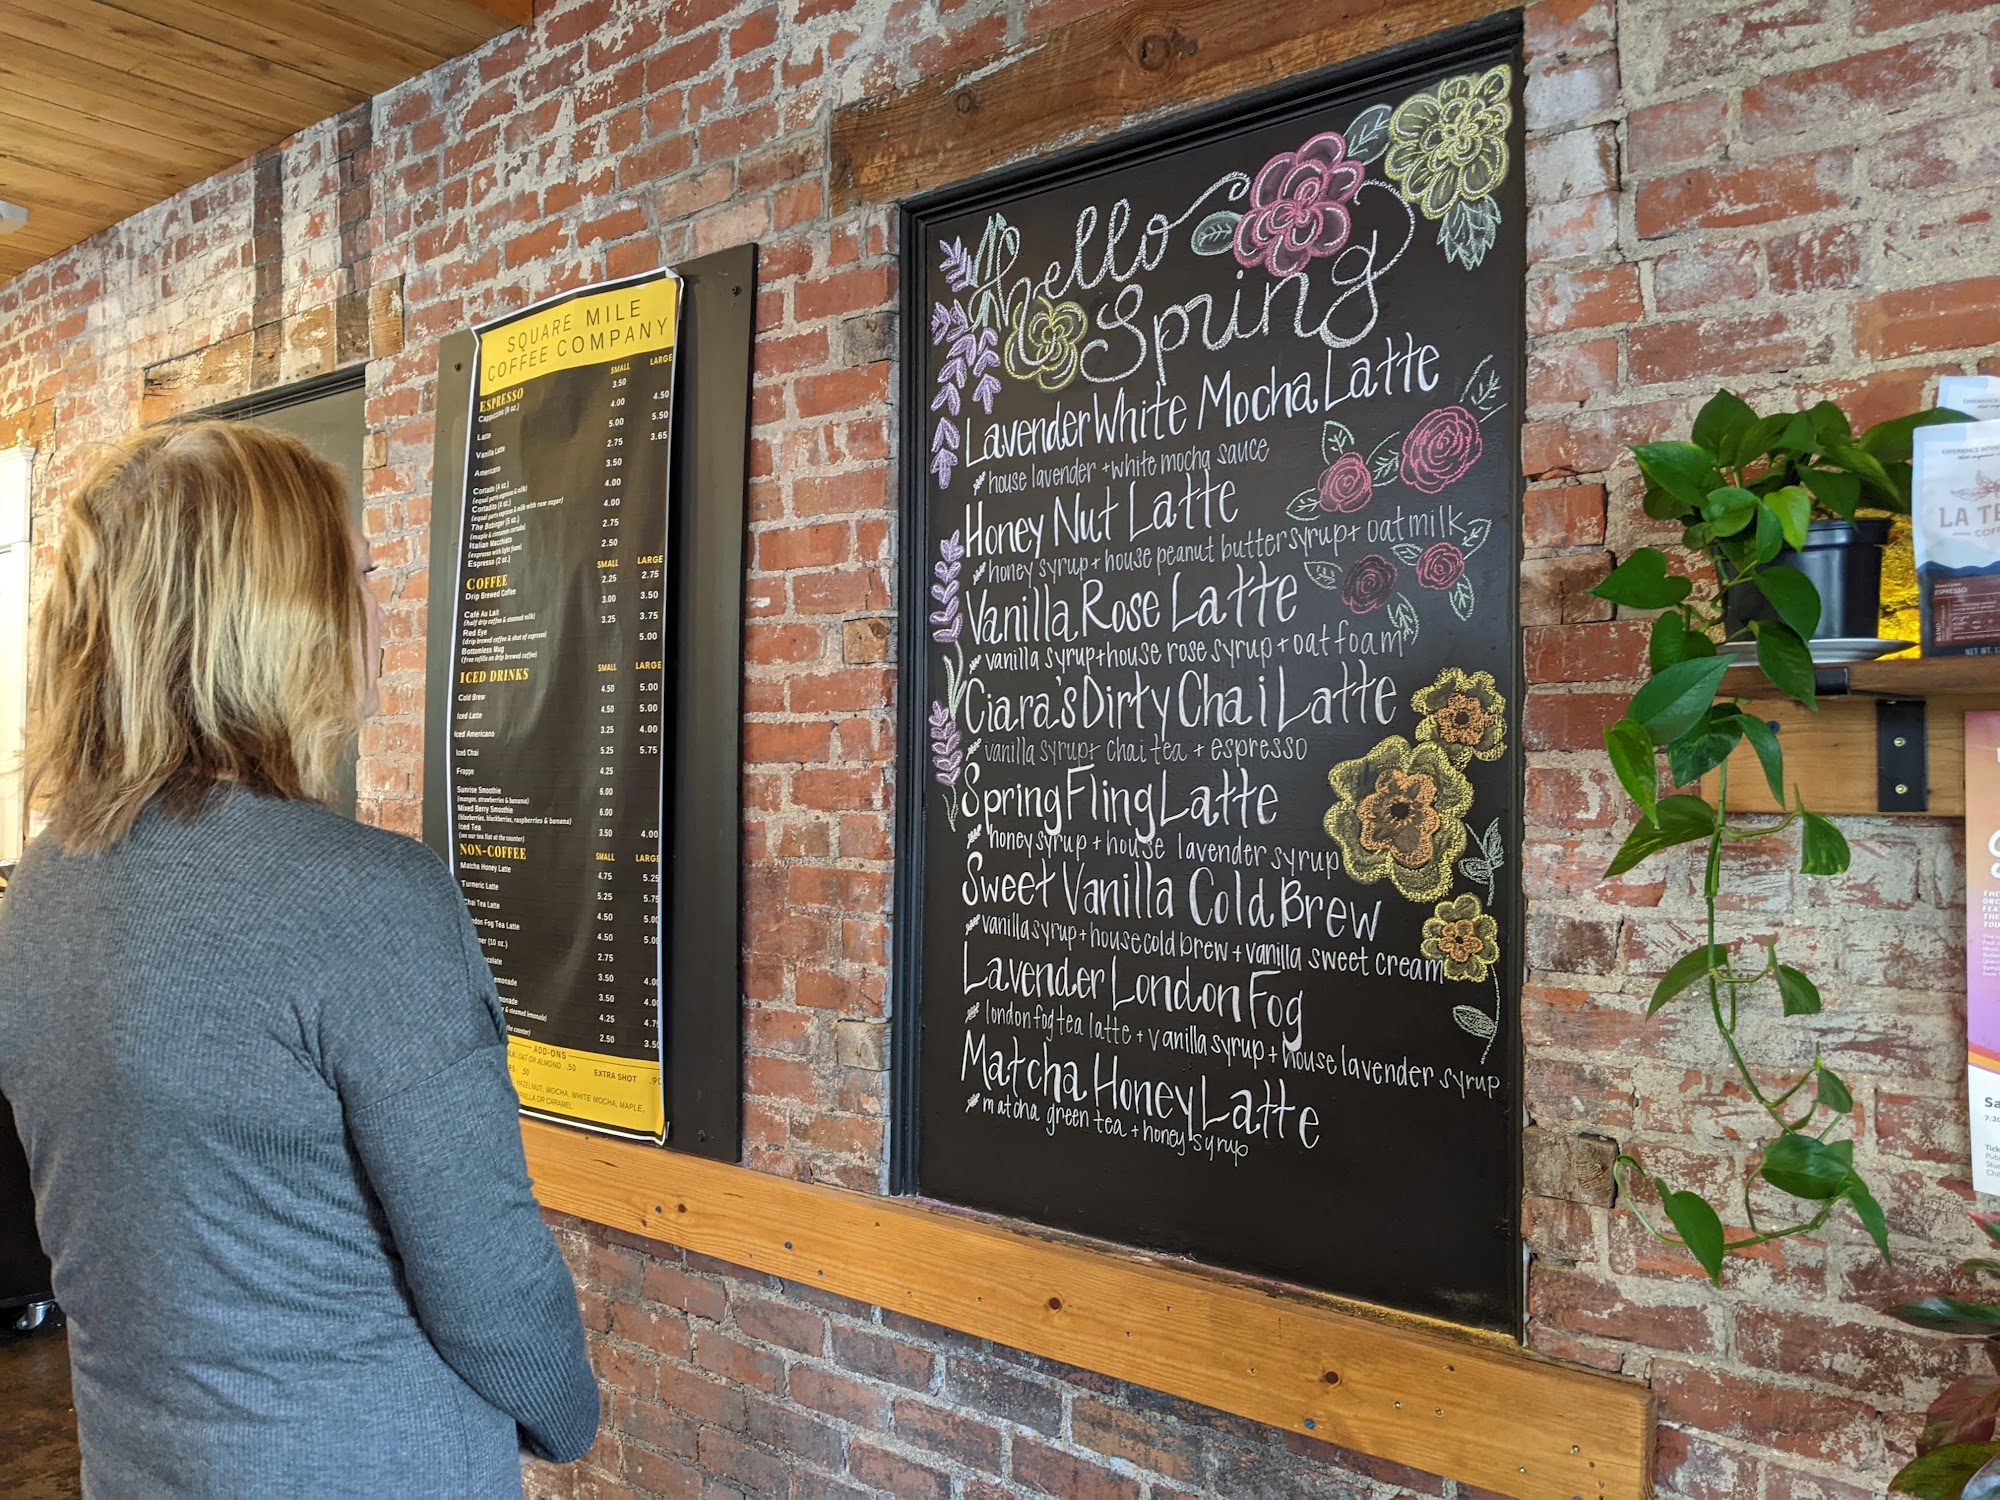 SQUARE MILE
COFFEE COMPANY
SMALL LARGE
ESPRESSO 3.50
Cappuccino (8 oz.) 4.00 4.50
Latte 5.00 5.50
Vanilla Latte 2.75 3.65
Americano 3.50
Cortado (4 oz.) 4.00
(equal parts espresso & milk)
Cortadito (4 oz.) 4.00
(equal parts espresso & milk with raw sugar)
The Bobinger (5 oz.) 2.75
(maple & cinnamon cortado)
Italian Macchiato 2.50
(espresso with light foam)
Espresso (2 oz.)
COFFEE SMALL LARGE
Drip Brewed Coffee 2.25 2.75
Café Au Lait 3.00 3.50
(half drip coffee & steamed milk)
Red Eye 3.25 3.75
(drip brewed coffee & shot of espresso)
Bottomless Mug 5.00
(free refills on drip brewed coffee)
ICED DRINKS SMALL LARGE
Cold Brew 4.50 5.00
Iced Latte 4.50 5.00
Iced Americano 3.25 4.00
Iced Chai 5.25 5.75
Frappe 4.25
Sunrise Smoothie 6.00
(mangos, strawberries & banana)
Mixed Berry Smoothie 6.00
(blueberries, blackberries, raspberries & banana)
Iced Tea 3.50 4.00
(see our tea list at the counter)
NON-COFFEE SMALL LARGE
Matcha Honey Latte 4.75 5.25
Turmeric Latte 5.25 5.75
Chai Tea Latte 4.50 5.00
ndon Fog Tea Latte 4.50 5.00
mer (10 oz.) 2.75
ocolate 3.50 4.00
emonade 3.50 4.00
monade 4.25 4.75
& steamed lemonade)
2.50 3.50
the counter)
ADD-ONS
ILK: OAT OR ALMOND .50 EXTRA SHOT .90
RS: .50
HAZELNUT, MOCHA, WHITE MOCHA, MAPLE,
VANILLA OR CARAMEL
hello
Spring
Lavender White Mocha Latte
house lavender + white mocha sauce
Honey Nut Latte
honey syrup + house peanut butter syrup + oat milk
Vanilla Rose Latte
vanilla syrup + house rose syrup + oat foam
Ciara's Dirty Chai Latte
vanilla syrup + chai tea + espresso
Spring Fling Latte
honey syrup + house lavender syrup
Sweet Vanilla Cold Brew
vanilla syrup + house cold brew + vanilla sweet cream
Lavender London Fog
london fog tea latte + vanilla syrup + house lavender syrup
Matcha Honey Latte
matcha green tea + honey syrup
LA TE
COFF
ESPRESSO
NET WT. 12
Sa
7:30
Tick
Pub
Stu
Chil